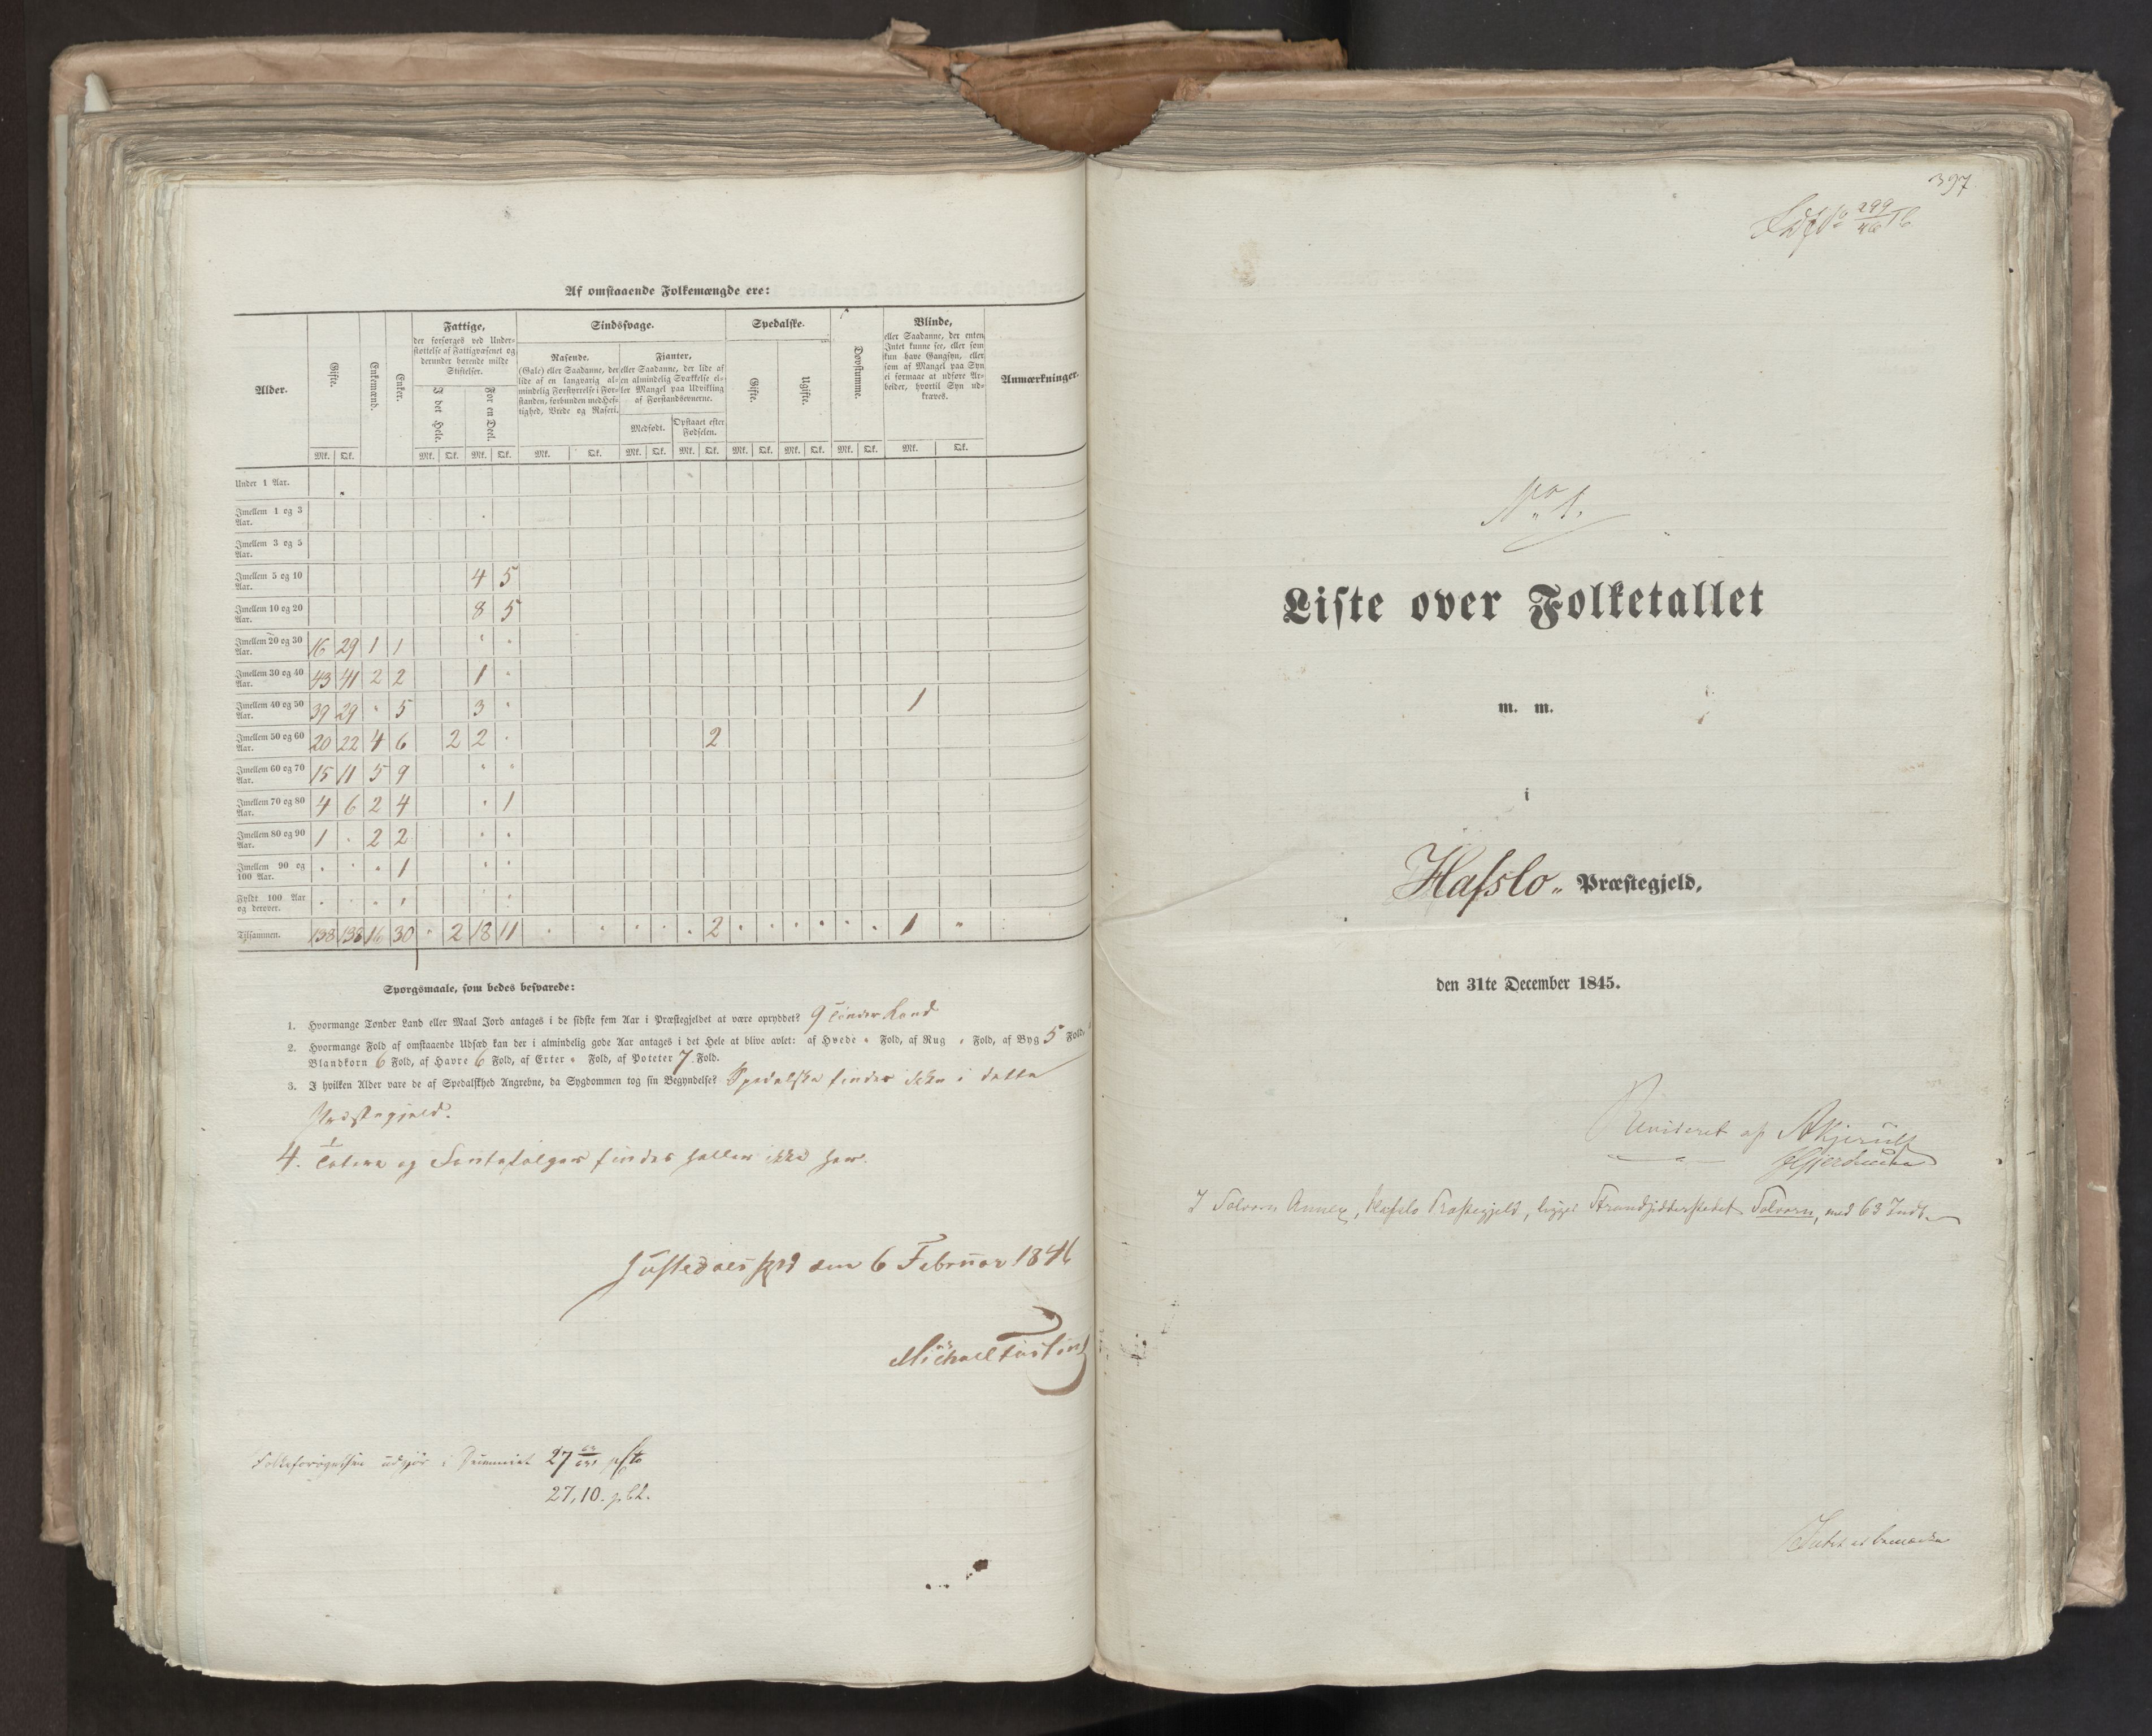 Af omstaaende Folkemængde ere:
Alder. Gifte. Enkemænd. Enker. Fattige, Sindssvage. Spedalske. Døvstumme. Blinde, Anmærkninger.
der forsørges ved Under-
støttelse af Fattigvæsenet og
derunder hørende milde
Stiftelser.
I det Hele. For en Deel.
Rasende.
(Gale) eller Saadanne, der
lide af en langvarig al-
mindelig Forstyrrelse i For-
standen, forbunden med Hef-
tighed, Vrede og Raseri.
Fjanter,
eller Saadanne, der lide af
en almindelig Svækkelse el-
ler Mangel paa Udvikling
af Forstandsevnerne.
Medfødt. Opstaaet efter
Fødselen.
Gifte. Ugifte.
eller Saadanne, der enten
Intet kunne see, eller som
kun have Gangsyn, eller
som af Mangel paa Syn
ei formaae at udføre Ar-
beider, hvortil Syn ud-
kræves.
Mk. Qk. Mk. Qk. Mk. Qk. Mk. Qk. Mk. Qk. Mk. Qk. Mk. Qk. Mk. Qk. Mk. Qk. Mk. Qk.
Under 1 Aar.
Imellem 1 og 3
Aar.
Imellem 3 og 5
Aar.
Imellem 5 og 10 4 5
Aar.
Imellem 10 og 20 8 5
Aar.
Imellem 20 og 30 16 29 1 1 " "
Aar.
Imellem 30 og 40 43 41 2 2 1 "
Aar.
Imellem 40 og 50 39 29 " 5 3 " 1
Aar.
Imellem 50 og 60 20 22 4 6 2 2 " 2
Aar.
Imellem 60 og 70 15 11 5 9 " "
Aar.
Imellem 70 og 80 4 6 2 4 " 1
Aar.
Imellem 80 og 90 1 " 2 2 " "
Aar.
Imellem 90 og " " " 1 " "
100 Aar.
Fyldt 100 Aar " " " " " "
og derover.
Tilsammen. 138 138 16 30 " 2 18 11 " " " " " 2 " " " " " " 1 "
Spørgsmaale, som bedes besvarede:
1. Hvormange Tønder Land eller Maal Jord antages i de sidste fem Aar i Præstegjeldet at være opryddet? 9 Tønder Land
2. Hvormange Fold af omstaaende Udsæd kan der i almindelig gode Aar antages i det Hele at blive avlet: af Hvede " Fold, af Rug " Fold, af Byg 5 Fold,
Blandkorn 6 Fold, af Havre 6 Fold, af Erter " Fold, af Poteter 7 Fold.
3. I hvilken Alder vare de af Spedalskhed Angrebne, da Sygdommen tog sin Begyndelse? Spedalske findes ikke i dette
Præstegjeld.
4. Tatere og Fantefølger findes heller ikke her.
den 6 Februar 1846
Michael
Folkeforøgelsen udgjør i Decenniet 27
27,10. pCt.
397
299
46
No 1.
Liste over Folketallet
m. m.
i
Hafslo Præstegjeld,
den 31te December 1845.
Revideret af
I Solvorn Annex, Hafslo Præstegjeld, ligger Strandsidderstedet Solvorn, med 63 Indb.
Intet at bemærke